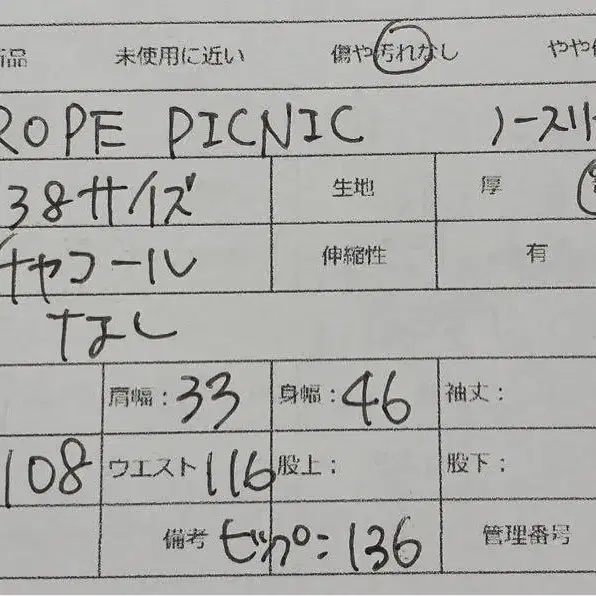 品 未使用に近い 傷や汚れなし やや
ROPE PICNIC ノースリ
38サイズ 生地 厚
チャコール 伸縮性 有
なし
肩幅:33 身幅:46 袖丈:
108 ウエスト 116 股上: 股下:
備考 ヒップ:136 管理番号